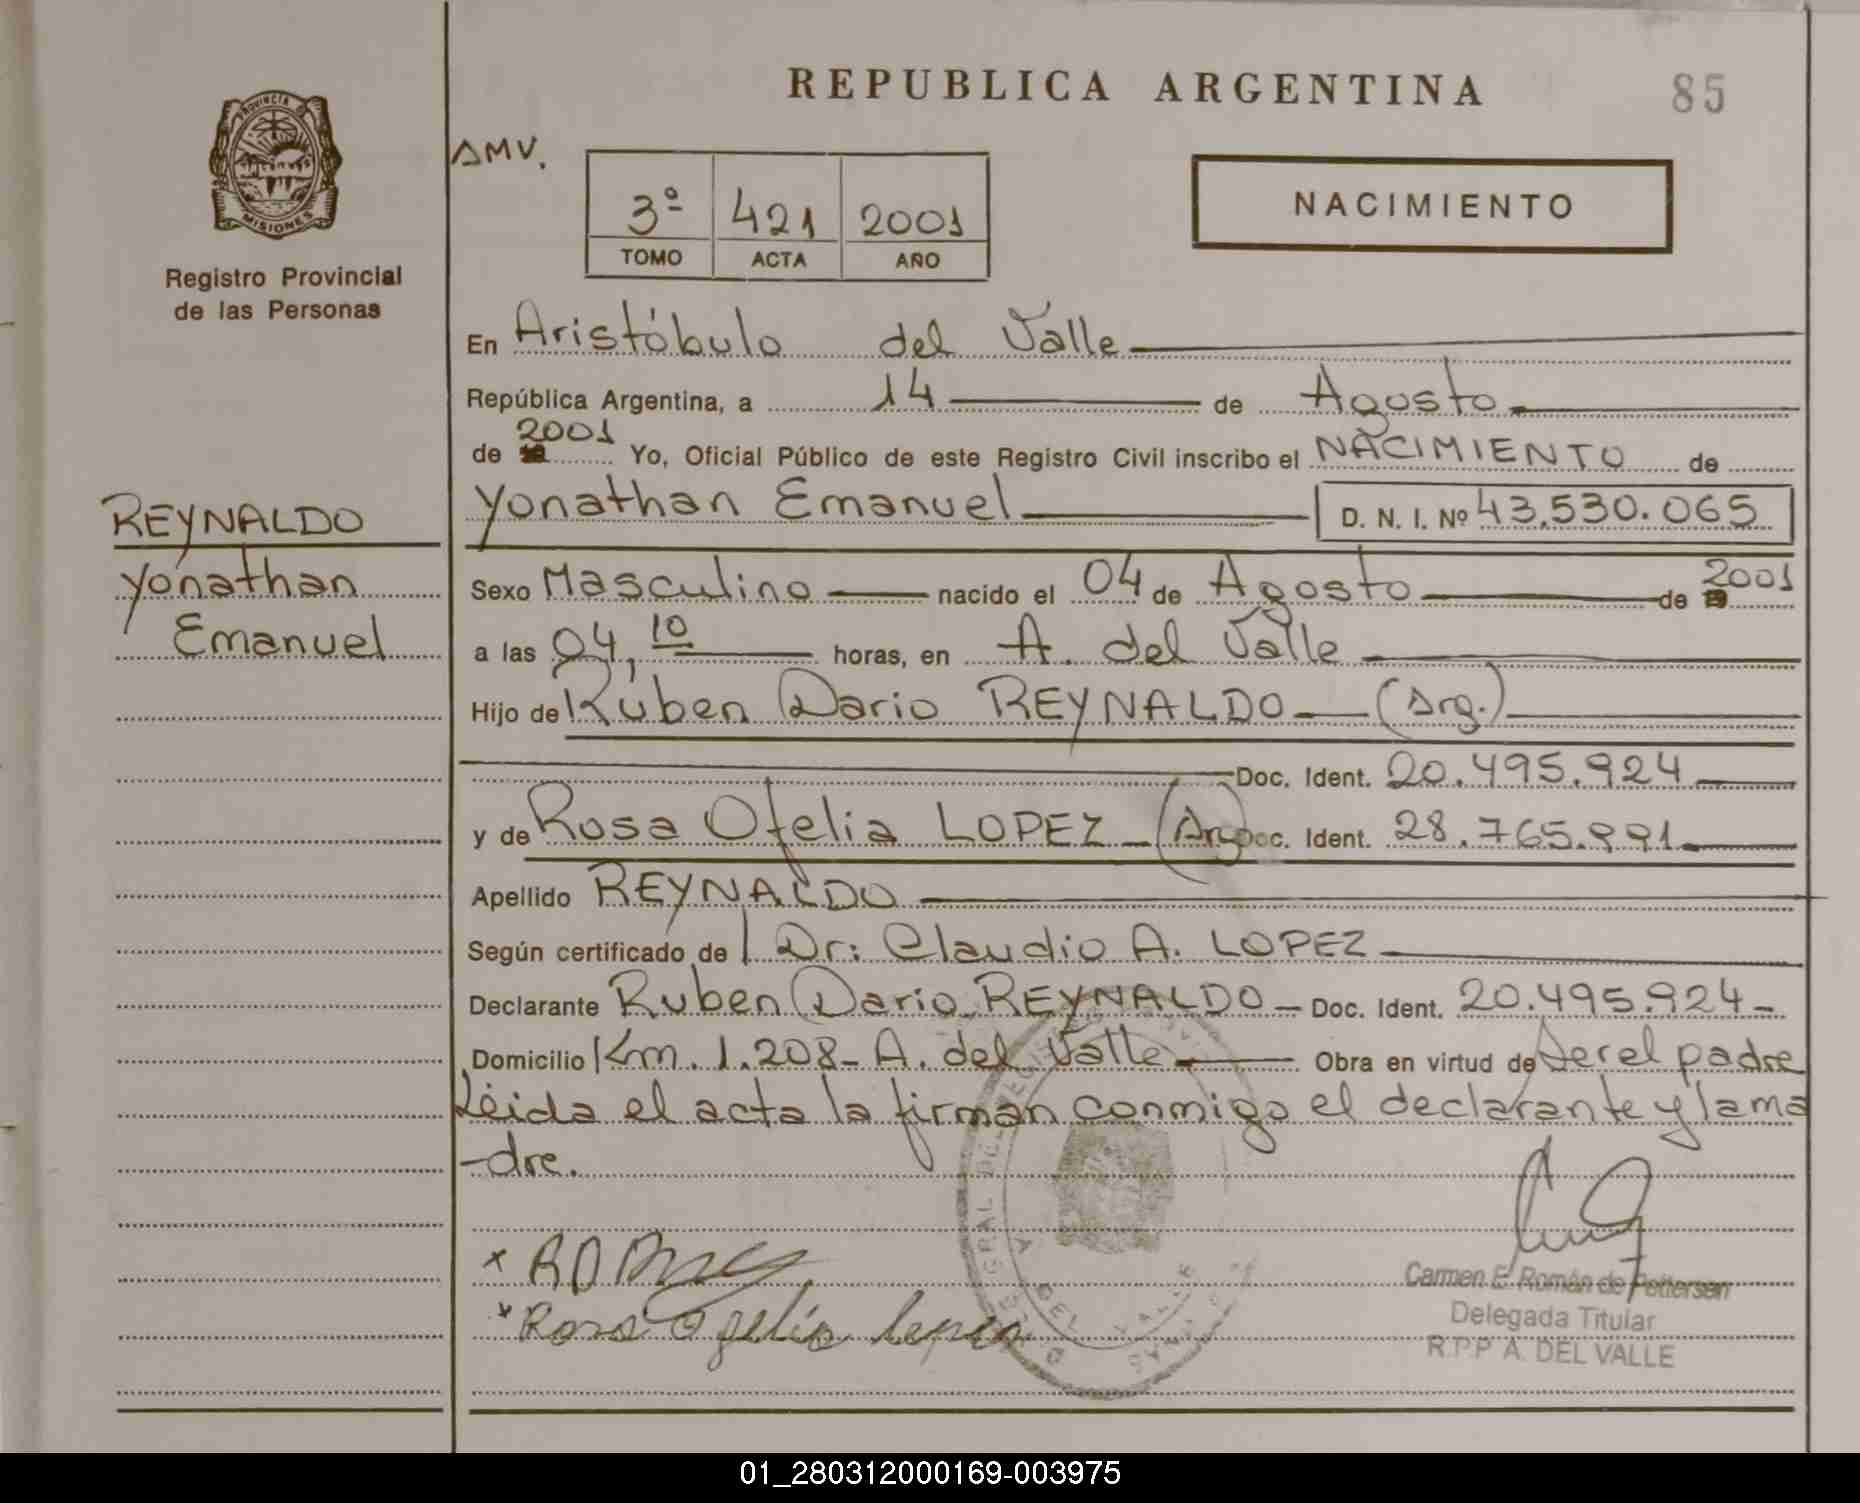 REPUBLICA ARGENTINA
85
PROVINCIA DE
MISIONES
Registro Provincial
de las Personas
AMV.
3º 421 2001
TOMO ACTA AÑO
NACIMIENTO
En Aristóbulo del Valle
República Argentina, a 14 de Agosto
de 2001 Yo, Oficial Público de este Registro Civil inscribo el NACIMIENTO de
REYNALDO
Yonathan
Emanuel
Yonathan Emanuel D. N. I. Nº 43.530.065
Sexo Masculino nacido el 04 de Agosto de 2001
a las 04,10 horas, en A. del Valle
Hijo de Rúben Dario REYNALDO - (Arg.)
Doc. Ident. 20.495.924
y de Rosa Ofelia LOPEZ - (Arg) Doc. Ident. 28.765.991
Apellido REYNALDO
Según certificado de Dr: Claudio A. LOPEZ
Declarante Ruben Dario REYNALDO - Doc. Ident. 20.495.924-
Domicilio Km. 1.208- A. del Valle Obra en virtud de Ser el padre
Leida el acta la firman conmigo el declarante y la ma
-dre.
A DEL VALLE
Rosa Ofelia Lopez
Carmen E. Román de Pettersen
Delegada Titular
R.P.P A. DEL VALLE
01_280312000169-003975